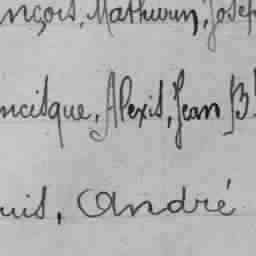 nçois, Mathurin, Josep
ncisque, Alexis, Jean B
uis, André